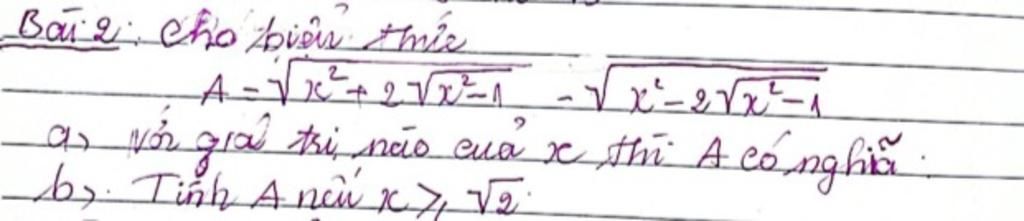 Bài 2: Cho biểu thức
A = √(x² + 2√(x²-1)) - √(x² - 2√(x²-1))
a, Với giá trị nào của x thì A có nghĩa.
b, Tính A nếu x ≥ √2.